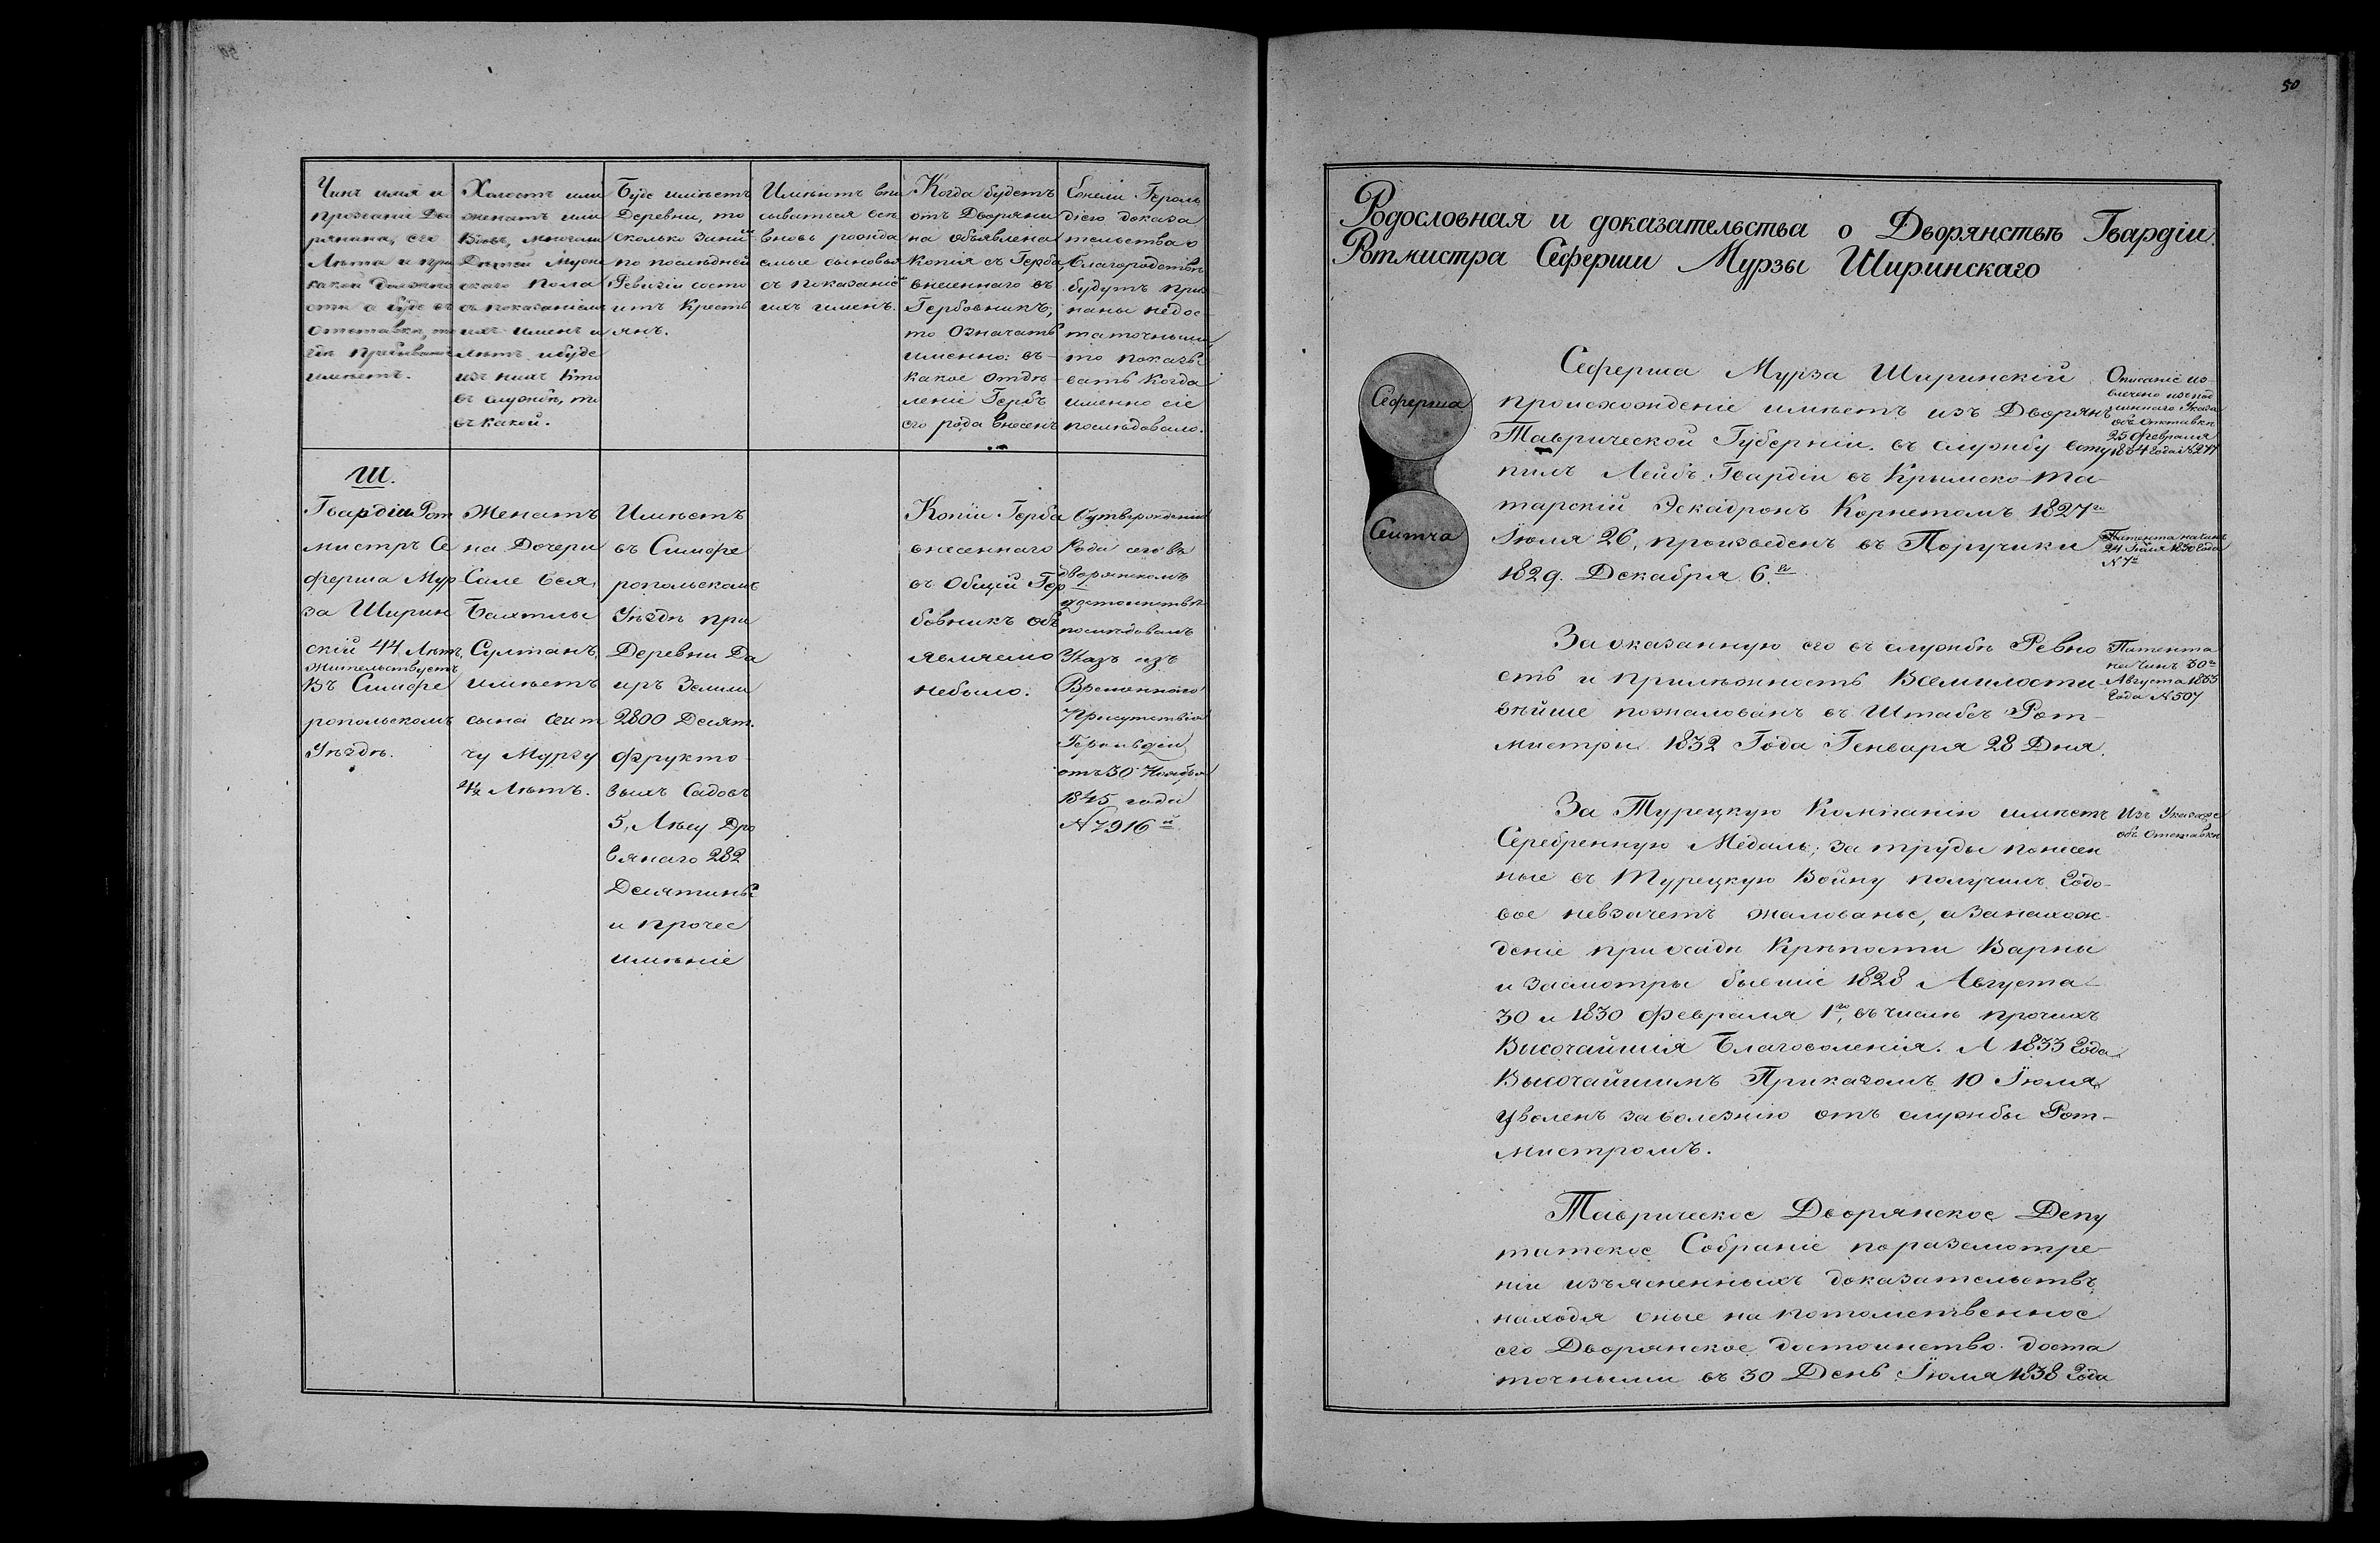 Чинъ имя и
прозваніе Дво
рянина, его
Лѣта и при
какой должно
сти а буде въ
отставкѣ, то
гдѣ пребываніе
имѣетъ.
Холостъ или
женатъ или
вдовъ, многоли
Дѣтей Муже
скаго пола
съ показаніемъ
ихъ именъ и
лѣтъ и буде
изъ нихъ кто
въ службѣ, то
въ какой.
Буде имѣетъ
Деревни, то
сколько за ним
по послѣдней
Ревизіи состо
итъ Кресть
янъ.
Имѣютъ впи
сываться всѣ
вновь рожда
емые сыновья
съ показаніем
ихъ именъ.
Когда будетъ
отъ Дворяни
на объявлена
копія съ Герба,
внесеннаго въ
Гербовникъ,
то Означать
именно: въ
какое отдѣ
леніе Гербъ
его рода внесенъ
Ежели Героль
діею доказа
тельства о
Благородствѣ
будутъ приз
наны недос
таточными,
то показы
вать когда
именно сіе
послѣдовало.
Ш.
Гвардіи Рот
мистръ Се
ферша Мур
за Ширин
скій 44 Лѣтъ,
жительствуетъ
Въ Симфе
ропольскомъ
Уѣздѣ.
Женатъ
на Дочери
Сале бея,
Бахтлы
Султанъ,
имѣетъ
сына Сеит
чу Мурзу
4½ Лѣтъ.
Имѣетъ
въ Симфе
ропольскомъ
Уѣздѣ при
Деревни Да
иръ Земли
2800 Десят.
фрукто
выхъ Садовъ
5, Лѣсу Дро
вянаго 282
Десятины
и прочее
имѣніе
Копіи Герба
внесеннаго
въ Общій Гер
бовникъ объ
являемо
небыло.
О утвержденіи
рода сего въ
дворянскомъ
достоинствѣ
послѣдовалъ
Указъ изъ
Временнаго
Присутствія
Герольдіи
отъ 30 Ноября
1845 года
№ 7916й
50
Родословная и доказательства о Дворянствѣ Гвардіи
Ротмистра Сеферши Мурзы Ширинскаго
Сеферша
Сеитча
Сеферша Мурза Ширинскій
происхожденіе имѣетъ изъ Дворянъ
Таврической Губерніи. въ службу всту
пилъ Лейбъ Гвардіи въ Крымско-Та-
тарскій Эскадронъ Корнетомъ 1827го
Іюля 26, произведенъ въ Поручики
1829. Декабря 6го
Описаніе из-
влечено изъ под
линнаго Указа
объ Отставкѣ
25 февраля
1834 года № 277
Патента на чинъ
24 Іюля 1830 Года
За оказанную его въ службѣ Ревно
сть и прилѣжность Всемилости-
вѣйше пожалованъ въ Штабсъ Рот-
мистры 1832 Года Генваря 28 Дня.
Патента
на Чинъ 30го
Августа 1833
Года № 507
За Турецкую Компанію имѣетъ
Серебренную Медаль; за труды понесен
ные въ Турецкую Войну получилъ Годо-
вое невзачетъ жалованье, а за нахож-
деніе при осадѣ Крѣпости Варны
и за смотры бывшіе 1828 Августа
30 и 1830 февраля 1го, въ числѣ прочихъ
Высочайшія Благоволенія. А 1833 Года
Высочайшимъ Приказомъ 10 Іюля
Уволенъ за болезнію отъ службы Рот-
мистромъ.
Изъ Указа же
объ Отставкѣ
Таврическое Дворянское Депу
татское Собраніе по разсмотре-
ніи изъясненныхъ доказательствъ
находя оные на потомственное
его Дворянское достоинство доста
точными въ 30 День Іюля 1838 Года